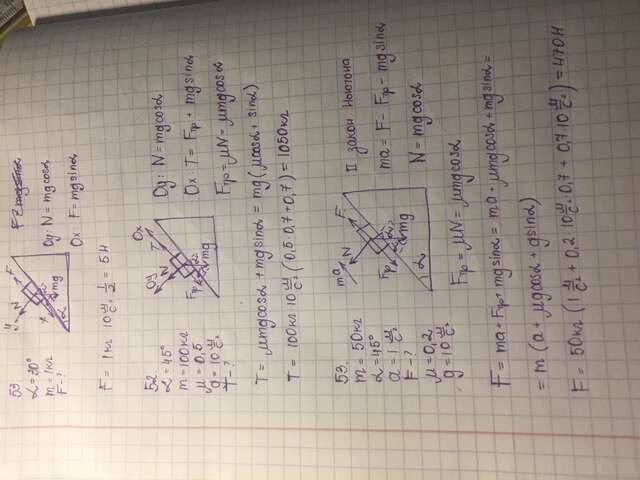 53
α = 30°
m = 1кг
F - ?
y
N
F
mg
α
Oy: N = mgcosα
Ox F = mgsinα
F = 1кг 10 м/с² ½ = 5Н
52
α = 45°
m = 100кг
μ = 0,5
g = 10 м/с²
T - ?
Oy
Ox
N
T
Fтр
mg
α
Oy: N = mgcosα
Ox: T = Fтр + mgsinα
Fтр = μN = μmgcosα
T = μmgcosα + mgsinα = mg(μcosα + sinα)
T = 100кг 10 м/с² (0,5·0,7 + 0,7) = 1050кг
53.
m = 50кг
α = 45°
a = 1 м/с²
F - ?
μ = 0,2
g = 10 м/с²
ma
N
F
Fтр
mg
α
II закон Ньютона
ma = F - Fтр - mgsinα
N = mgcosα
Fтр = μN = μmgcosα
F = ma + Fтр + mgsinα = ma + μmgcosα + mgsinα =
= m(a + μgcosα + gsinα)
F = 50кг (1 м/с² + 0,2 10 м/с² · 0,7 + 0,7 10 м/с²) = 470Н